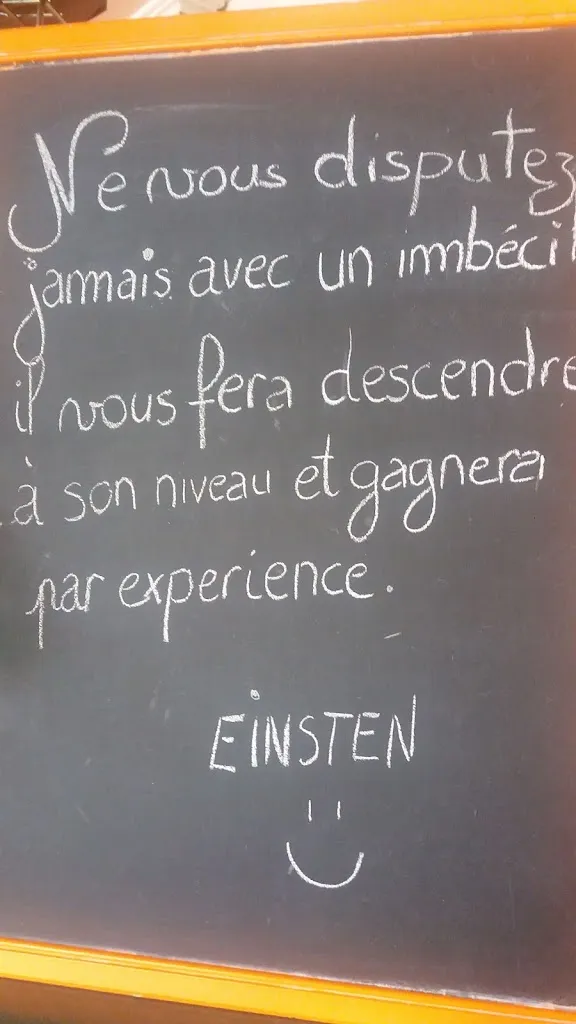 Ne vous disputez
jamais avec un imbécil
il vous fera descendre
à son niveau et gagnera
par experience.
EiNSTEN